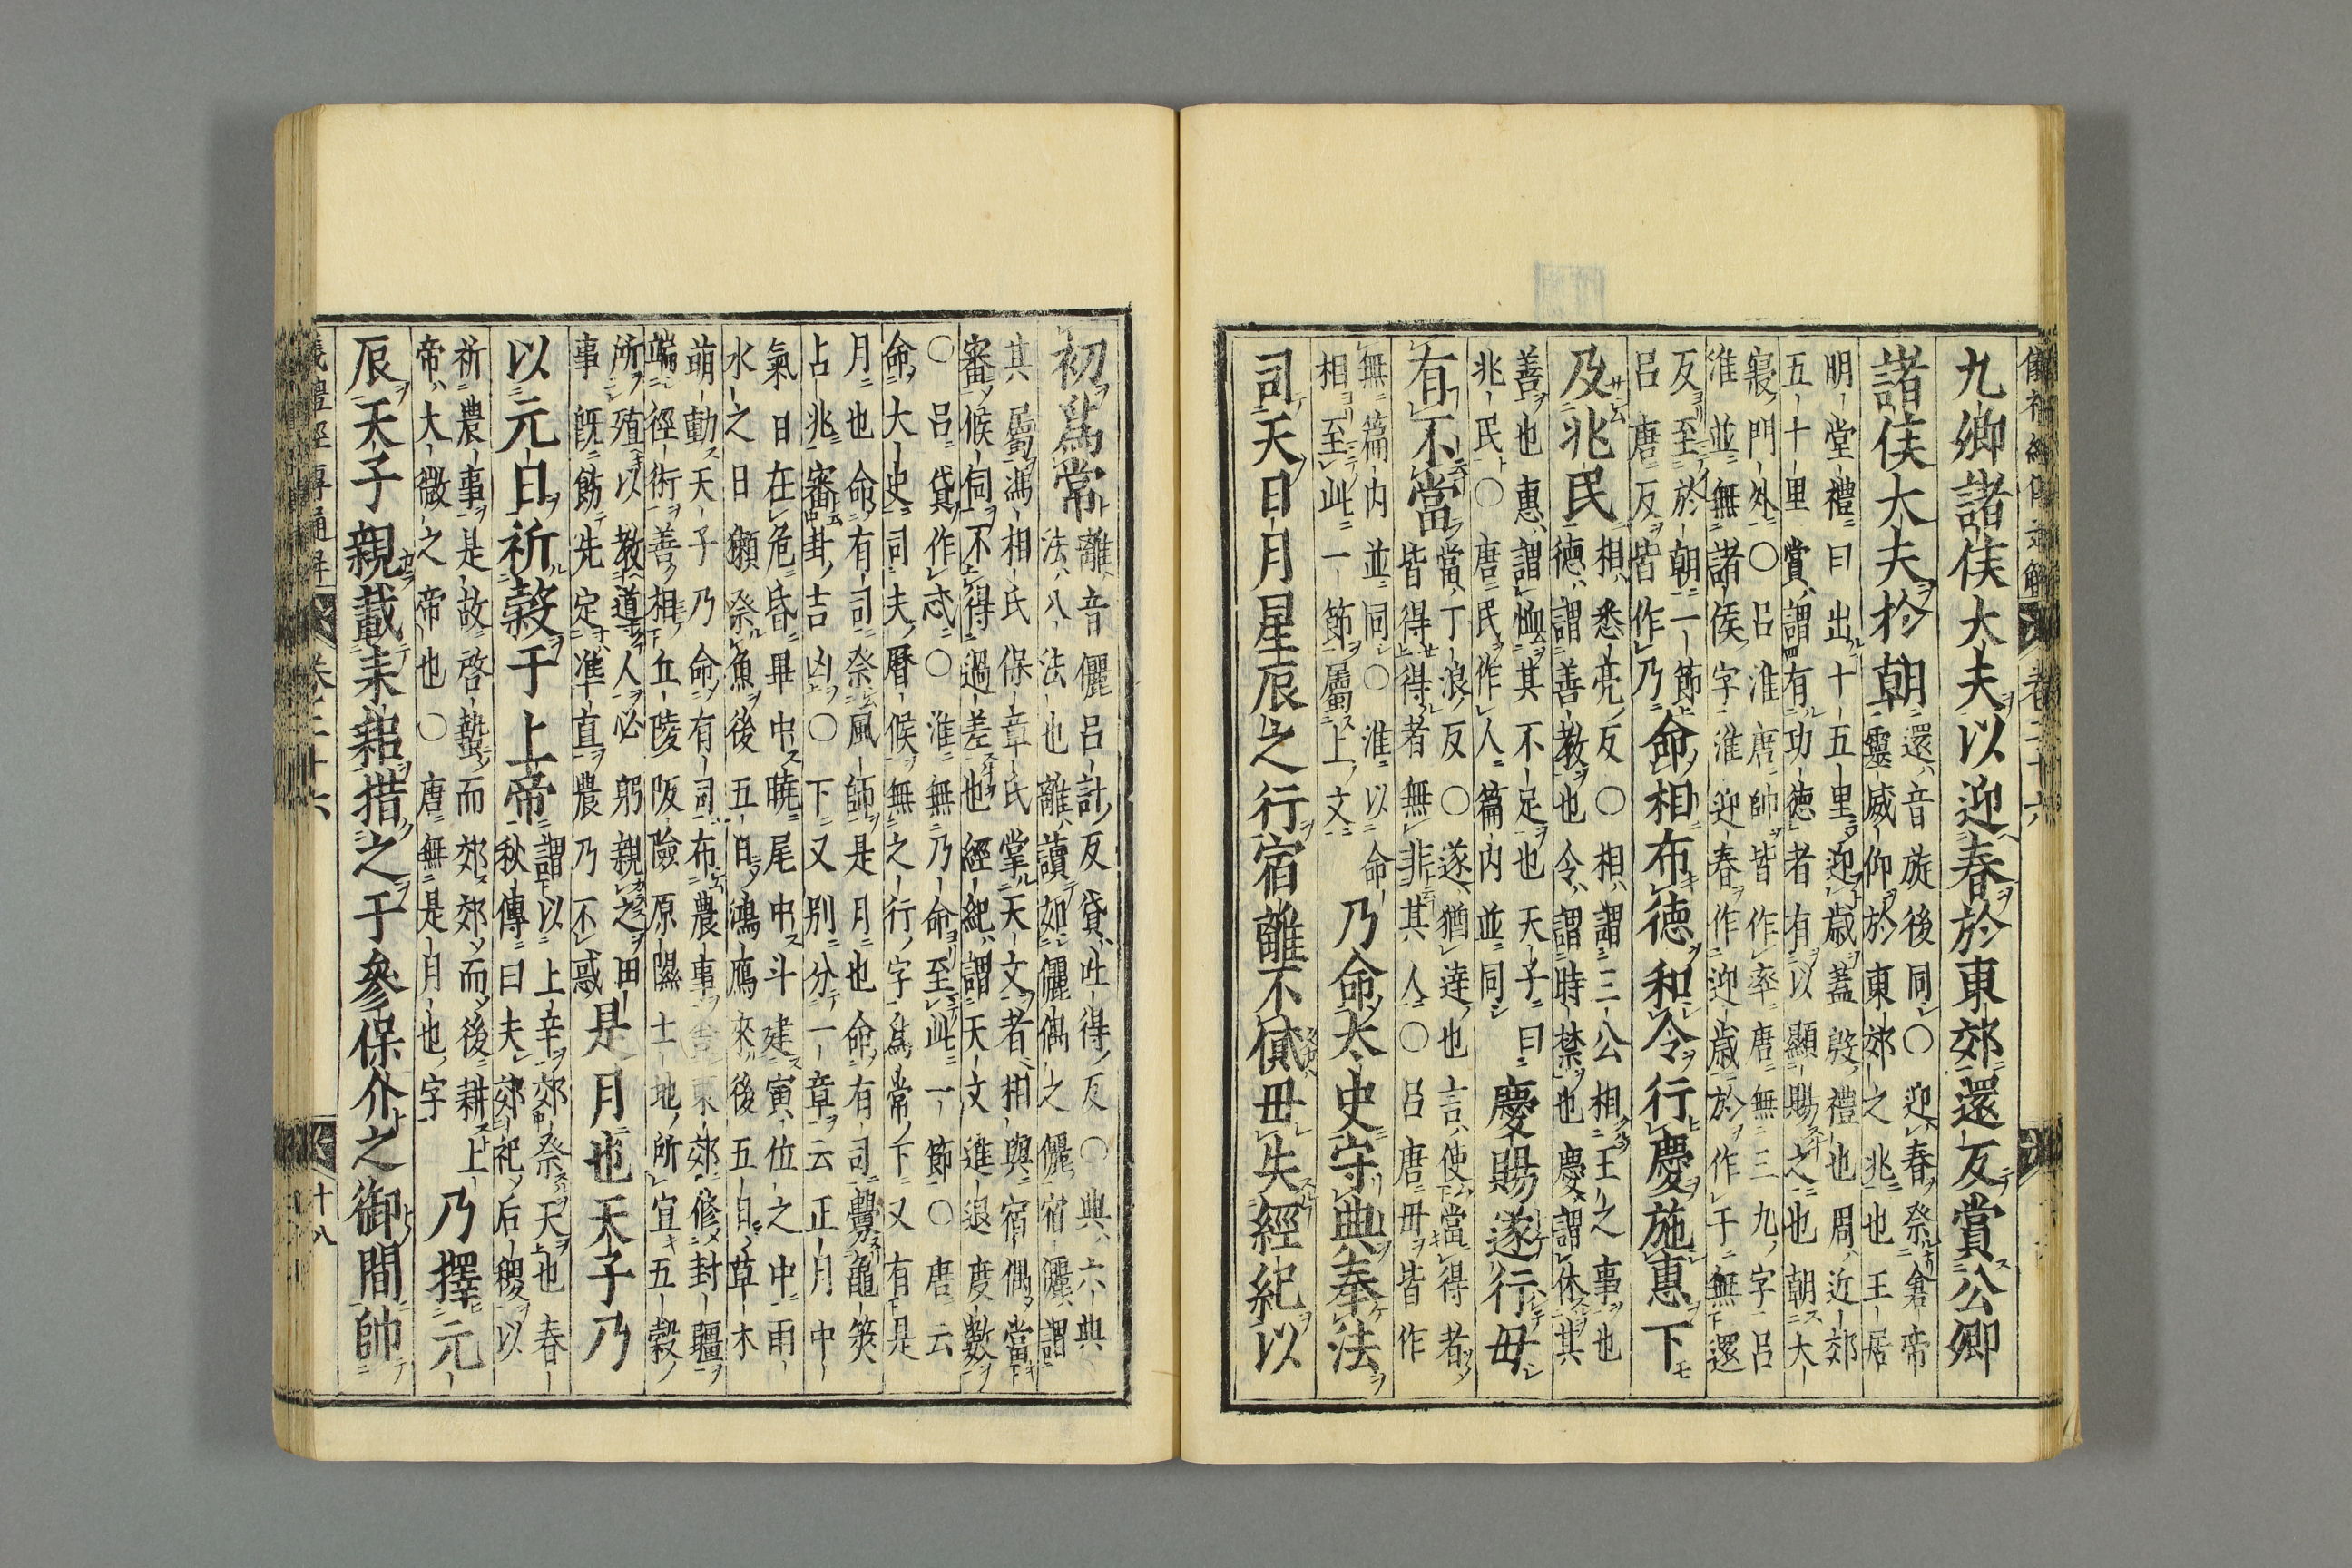 儀禮經傳通解 卷二十六
九卿諸侯大夫以迎春於東郊還反賞公卿
諸侯大夫於朝
還音旋後同○迎春祭倉帝
靈威仰於東郊之兆也王居
明堂禮曰出十五里迎歲蓋殷禮也周近郊
五十里賞謂有功德者有以顯賜之也朝大
寢門外○呂淮唐帥皆作率唐無三九字呂
淮並無諸侯字淮迎春作迎歲於作于無還
反至於朝一節
呂唐反皆作乃
命相布德和令行慶施惠下
及兆民
相悉亮反○相謂三公相王之事也
德謂善教也令謂時禁也慶謂休其
善也惠謂恤其不足也天子曰
兆民○唐民作人篇内並同
慶賜遂行毋
有不當
當丁浪反○遂猶達也言使當得者
皆得得者無非其人○呂唐毋皆作
無篇内並同○淮以命
相至此一節屬上文
乃命太史守典奉法
司天日月星辰之行宿離不貸毋失經紀以
初爲常
離音儷呂計反貸吐得反○典六典
法八法也離讀如儷偶之儷宿儷謂
其屬馮相氏保章氏掌天文者相與宿偶當
審候伺不得過差也經紀謂天文進退度數
○呂貸作忒○淮無乃命至此一節○唐云
命大史司夫曆候無之行字爲常下又有是
月也命有司祭風師是月也命有司釁龜筴
占兆審卦吉凶○下又別分一章云正月中
氣日在危昏畢中曉尾中斗建寅位之中雨
水之日獺祭魚後五日鴻鴈來後五日草木
萌動天子乃命有司布農事東郊修封疆
端徑術善相丘陵阪險原隰土地所宜五穀
所殖以教道人必躬親之田
事既飭先定準直農乃不惑
是月也天子乃
以元日祈穀于上帝
謂以上辛郊祭天也春
秋傳曰夫郊祀后稷以
祈農事是故啓蟄而郊郊而後耕上
帝大微之帝也○唐無是月也字
乃擇元
辰天子親載耒耜措之于參保介之御間帥
儀禮經傳通解 卷二十六 十八